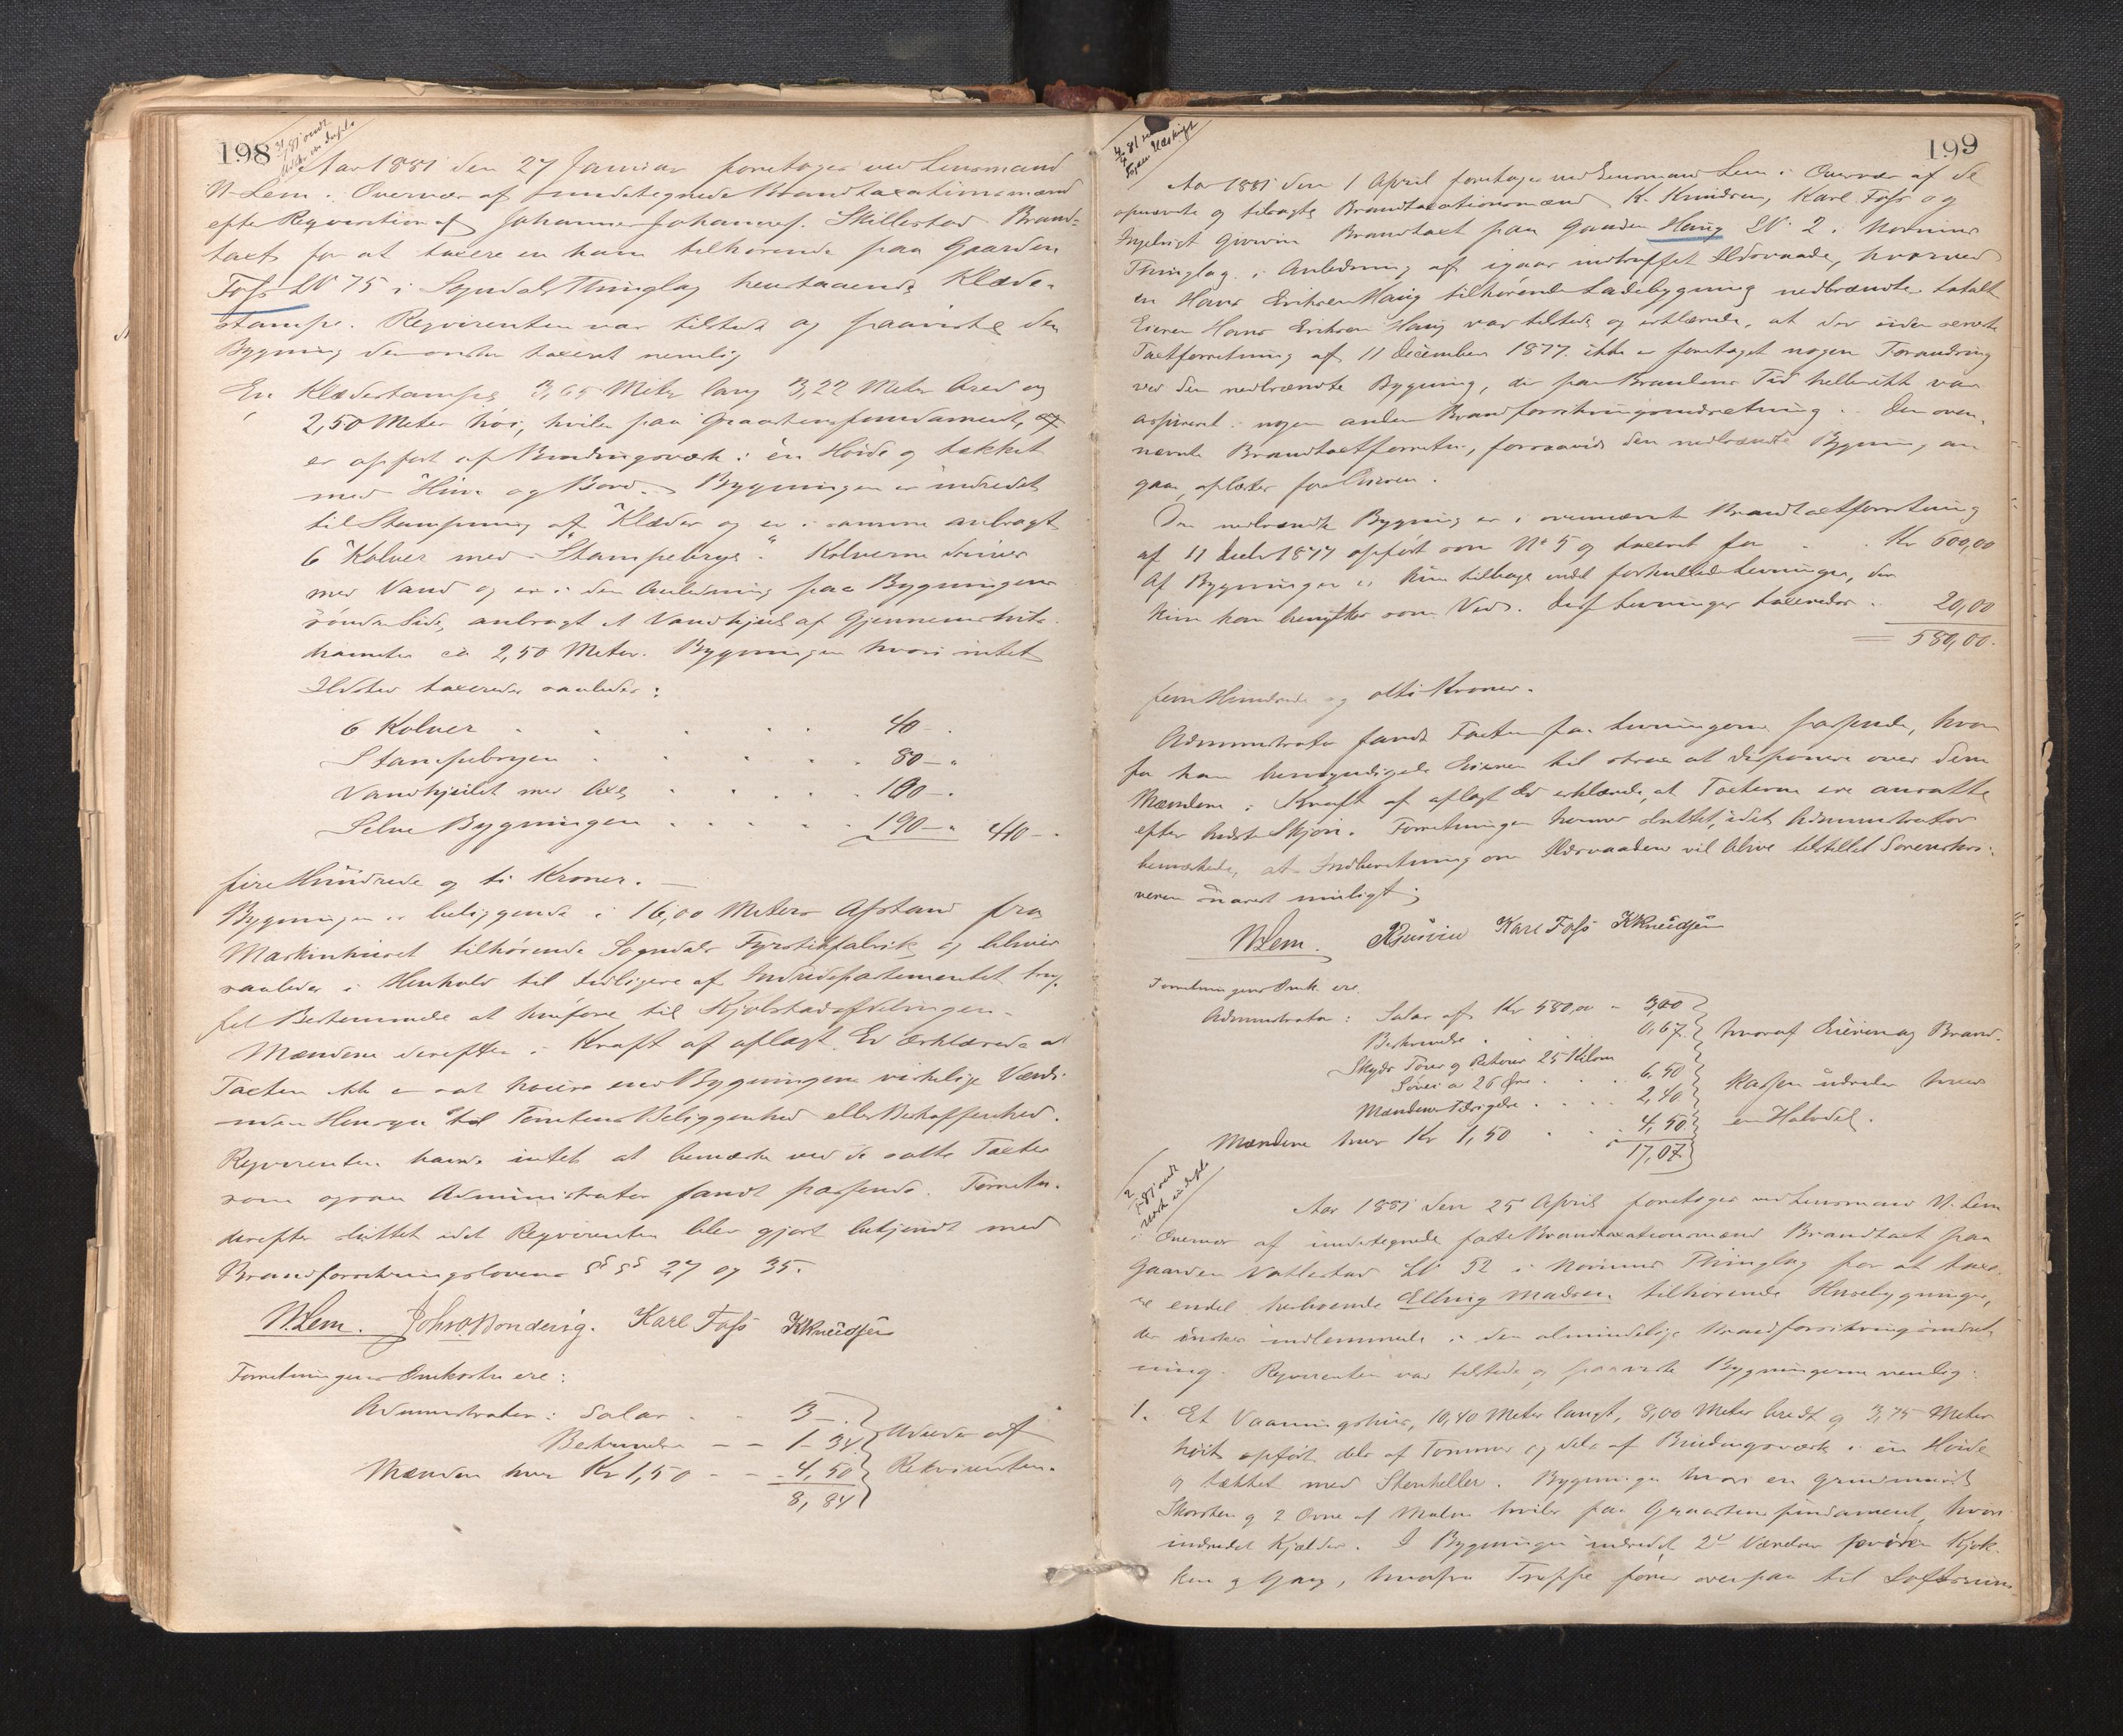 198
Aar 1881 den 27 Januar foretoges ved Lensmand
N. Lem i Overvær af undertegnede Brandtaxationsmænd
efter Reqvisition af Johannes Johannes. Skillestad Brand-
taxt for at taxere en ham tilhørende paa Gaarden
Foss LN 75 i Sogndals Thinglag henstaaende Klæde-
stampe. Reqvirenten var tilstede og paaviste den
Bygning der ønskes taxeret nemlig
En Klædestampe 3,65 Meter lang 3,22 Meter bred og
2,50 Meter høi, hviler paa Graastensfundament,
er opført af Bindingsværk i én Høide og tækket
med Hun og Bord. Bygningen er indredet
til Stampning af Klæder og er i samme anbragt
6 Kolver med "Stampebrye". Kolverne drives
med Vand og er i den Anledning paa Bygningens
søndre Side, anbragt et Vandhjul af Gjennemsnits-
diameter ca 2,50 Meter. Bygningen hvori intet
Ildsted taxeredes saaledes:
6 Kolver 40 -
Stampebryen 80 - "
Vandhjulet med Axe 100 - .
Selve Bygningen 190 - " 410 - .
fire Hundrede og ti Kroner. -
Bygningen er beliggende i 16,00 Meters Afstand fra
Maskinhuset tilhørende Sogndals Fyrstikfabrik og bliver
saaledes i Henhold til tidligere af Indredepartementet truf-
fet Bestemmelse at henføre til Kjøbstadafdelingen. -
Mændene derefter i Kraft af aflagt Ed erklærede at
Taxten ikke er sat høiere end Bygningens virkelige Værdi
uden Hensyn til Tomtens Beliggenhed eller Beskaffenhed.
Reqvirenten havde intet at bemærke ved de satte Taxter
som ogsaa Administrator fandt passende. Forretn.
derefter sluttet idet Reqvirenten blev gjort bekjendt med
Brandforsikringslovens §§ 27 og 35.
N. Lem. Karl Foss K Knudsen
Forretningens Omkostn ere:
Administrator: Salær 3 - .
Beskrivelse - - 1 - 34
Mændene hver Kr 1,50 - - 4,50
8,84
Udredes af
Rekvirenten.
199
Aar 1881 den 1 April foretoges ved Lensmand Lem i Overvær af de
opnævnte og tilsagte Brandtaxationsmænd K. Knudsen, Karl Foss og
Ingebrigt Gurvin Brandtaxt paa Gaarden Haug LN. 2 i Norums
Thinglag i Anledning af igaar indtruffet Ildsvaade, hvorved
en Hans Eriksen Haug tilhørende Ladebygning nedbrændte totalt
Eieren Hans Eriksen Haug var tilstede og erklærede, at der siden seneste
Taxtforretning af 11 December 1877 ikke er foretaget nogen Forandring
ved den nedbrændte Bygning, der paa Brandens Tid heller ikke var
assureret i nogen anden Brandforsikringsindretning. Den oven-
nævnte Brandtaxtforretn., forsaavidt den nedbrændte Bygning, an
gaar, oplæstes for Eieren.
Den nedbrændte Bygning er i ovennævnte Brandtaxtforretning
af 11 Decbr 1877 opført som No 5 og taxeret for Kr 600,00
Af Bygningen er kun tilbage endel forkullede Levninger, der
kun kan benyttes som Ved. Disse Levninger taxeredes 20,00
580,00.
fem Hundrede og otti Kroner.
Administrator fandt Taxten for Levningerne passende, hvor
for han bemyndigede Eieren til strax at disponere over dem
Mændene i Kraft af aflagt Ed erklærede, at Taxterne ere ansatte
efter bedste Skjøn. Forretningen hermed sluttet, idet Administrator
bemærkede, at Indberetning om Ildsvaaden vil blive tilstillet Sorenskri-
veren snarest muligt;
N. Lem. Karl Foss K Knudsen
Forretningens Omk. ere
Administrator: Salær af Kr 580,00 - 3,00
Beskrivelse 0,67
Skyds Tour og Retour 25 Kilom
Søvei a 26 Øre 6,50
Mændenes 2,40
Mændene hver Kr 1,50 4,50
17,07
hvoraf Eieren og Brand-
kassen udreder hver
en Halvdel.
Aar 1881 den 25 April foretoges ved Lensmand N. Lem
i Overvær af undertegnede faste Brandtaxationsmænd Brandtaxt paa
Gaarden Vatlestad LN 52 i Norums Thinglag for at taxe-
re endel herboende Elling Madsen tilhørende Husebygninger,
der ønskes indlemmede i den almindelige Brandforsikringsindret-
ning. Reqvirenten var tilstede og paaviste Bygningerne nemlig:
1. Et Vaaningshus, 10,40 Meter langt, 8,00 Meter bredt og 3,75 Meter
høit opført dels af Tømmer og dels af Bindingsværk i én Høide
og tækket med Stenheller. Bygningen hvori en grundmuret
Skorsten og 2 Ovne af Malm hviler paa Graastensfundament, hvori
indredet Kjælder. I Bygningen indredet 2de Værelser foruden Kjøk-
ken og Gang, hvorfra Trappe fører ovenpaa til Loftsrum